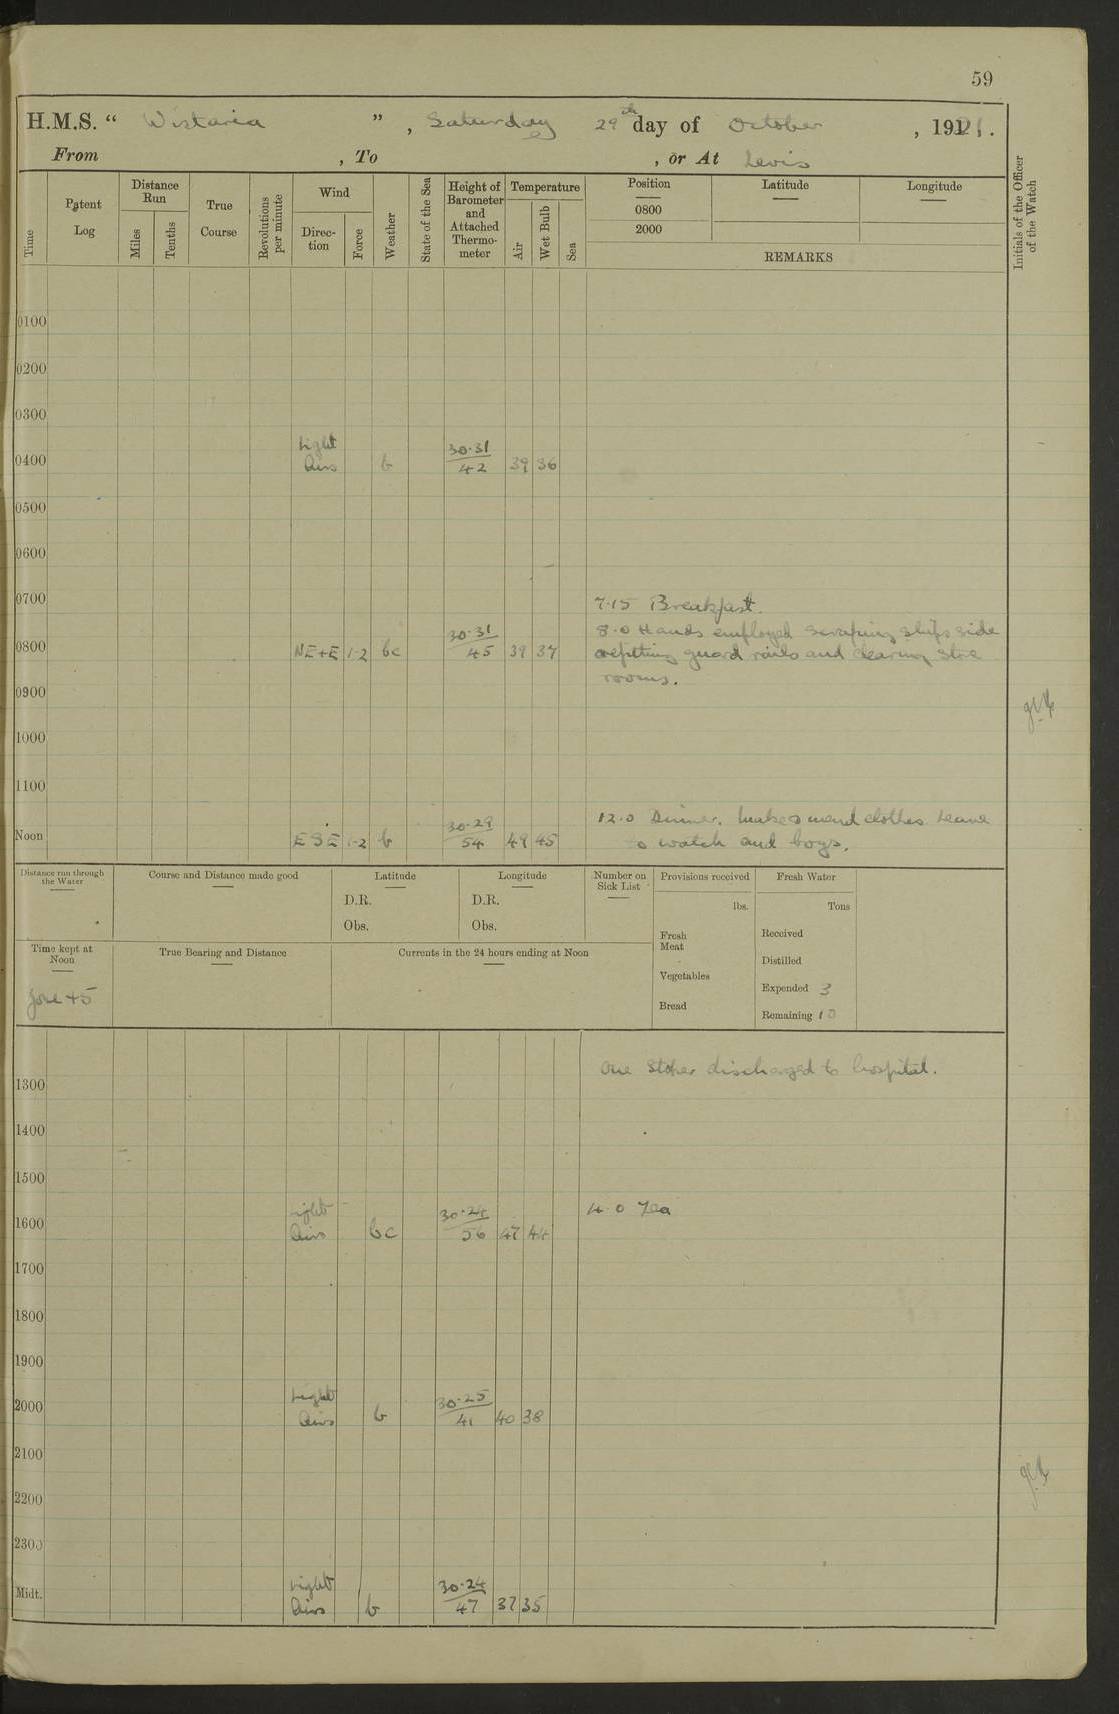 59
H.M.S. “ Wistaria ” , Saturday 29th day of October , 1921.
From , To , or At Levis
Time
Patent Log
Distance Run
Miles
Tenths
True Course
Revolutions per minute
Wind
Direc-tion
Force
Weather
State of the Sea
Height of Barometer and Attached Thermo-meter
Temperature
Air
Wet Bulb
Sea
Position
0800
2000
Latitude
Longitude
REMARKS
Initials of the Officer of the Watch
0100
0200
0300
0400 Light Airs b 30.31 42 39 36
0500
0600
0700 7.15 Breakfast.
8.0 Hands employed scraping ships side
0800 NE+E 1-2 bc 30.31 45 39 37 refitting guard rails and clearing store
rooms.
0900
1000
1100
12.0 Dinner. make & mend clothes. Leave
Noon ESE 1-2 b 30.29 54 49 45 to watch and boys.
Distance run through the Water
Course and Distance made good
Latitude
D.R.
Obs.
Longitude
D.R.
Obs.
Number on Sick List
Provisions received
lbs.
Fresh Meat
Vegetables
Bread
Fresh Water
Tons
Received
Distilled
Expended 3
Remaining 10
Time kept at Noon
Zone +5
True Bearing and Distance
Currents in the 24 hours ending at Noon
One Stoker discharged to hospital.
1300
1400
1500
1600 Light Airs bc 30.24 56 47 44 4.0 Tea
1700
1800
1900
2000 Light Airs b 30.25 41 40 38
2100
2200
2300
Midt. Light Airs b 30.24 47 37 35